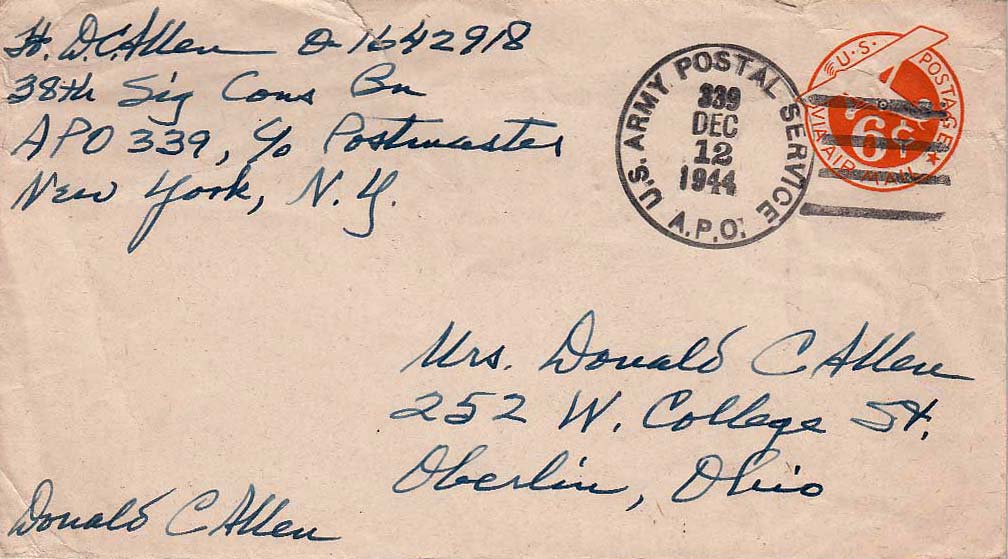 Lt. D.C. Allen O-1642918
38th Sig Cons Bn
APO 339, c/o Postmaster
New York, N.Y.
U.S. ARMY POSTAL SERVICE
339
DEC
12
1944
A.P.O.
U.S. POSTAGE
6¢
VIA AIR MAIL
Mrs. Donald C Allen
252 W. College St.
Oberlin, Ohio
Donald C Allen